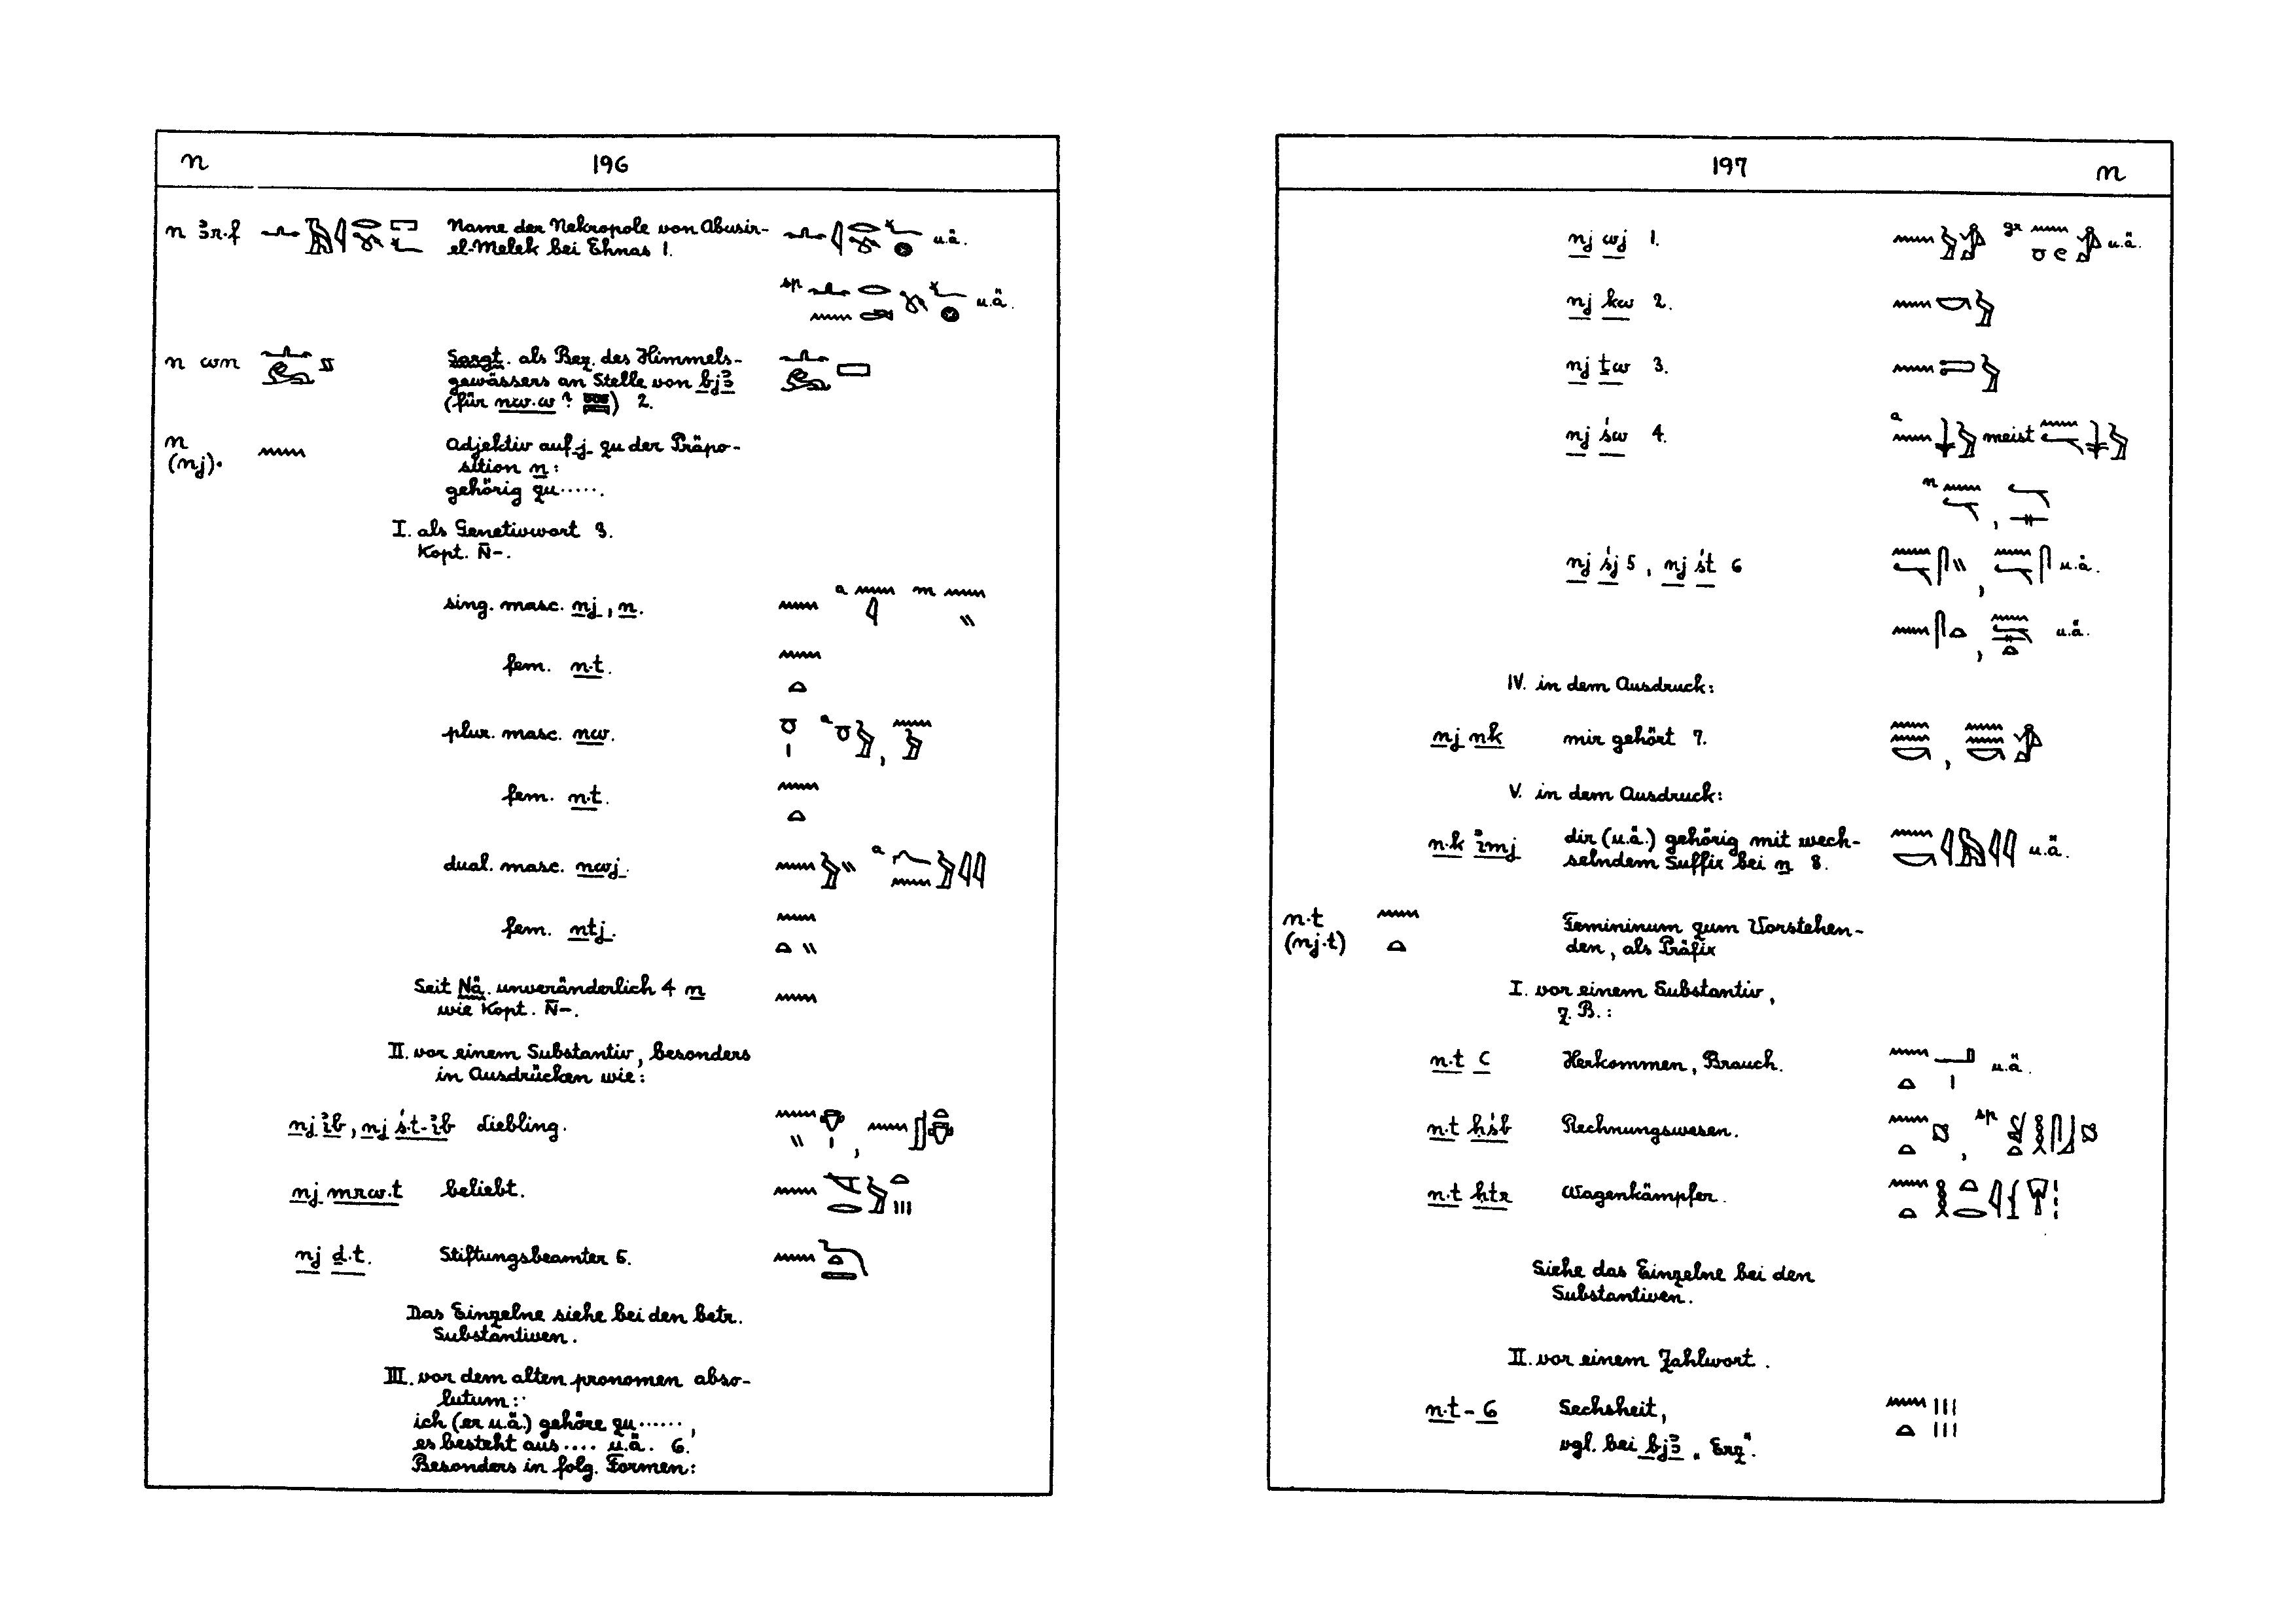 n 196
n ꜣr.f Name der Nekropole von Abusir- u.ä.
el-Melek bei Ehnas 1.
sp u.ä.
n wn Sargt. als Bez. des Himmels-
gewässers an Stelle von bjꜣ
(für nw.w? ) 2.
n Adjektiv auf j zu der Präpo-
(nj). sition n:
gehörig zu ......
I. als Genetivwort 3.
Kopt. N̄-.
sing. masc. nj, n. a m
fem. n.t.
plur. masc. nw. a ,
fem. n.t.
dual. masc. nwj. a
fem. ntj.
Seit Nä. unveränderlich 4 n
wie Kopt. N̄-.
II. vor einem Substantiv, besonders
in Ausdrücken wie:
nj ib, nj ś.t-ib Liebling. ,
nj mrw.t beliebt.
nj ḏ.t. Stiftungsbeamter 5.
Das Einzelne siehe bei den betr.
Substantiven.
III. vor dem alten pronomen abso-
lutum:
ich (er u.ä.) gehöre zu ......,
es besteht aus .... u.ä. 6.
Besonders in folg. Formen:
197 n
nj wj 1. gr u.ä.
nj kw 2.
nj ṯw 3.
nj św 4. a meist
n ,
nj śj 5, nj śt 6 , u.ä.
, u.ä.
IV. in dem Ausdruck:
nj nk mir gehört 7. ,
V. in dem Ausdruck:
n.k imj dir (u.ä.) gehörig mit wech- u.ä.
selndem Suffix bei n 8.
n.t Femininum zum Vorstehen-
(nj.t) den, als Präfix
I. vor einem Substantiv,
z. B.:
n.t ꜥ Herkommen, Brauch. u.ä.
n.t ḥśb Rechnungswesen. , sp
n.t ḥtr Wagenkämpfer.
Siehe das Einzelne bei den
Substantiven.
II. vor einem Zahlwort.
n.t-6 Sechsheit,
vgl. bei bjꜣ „Erz".